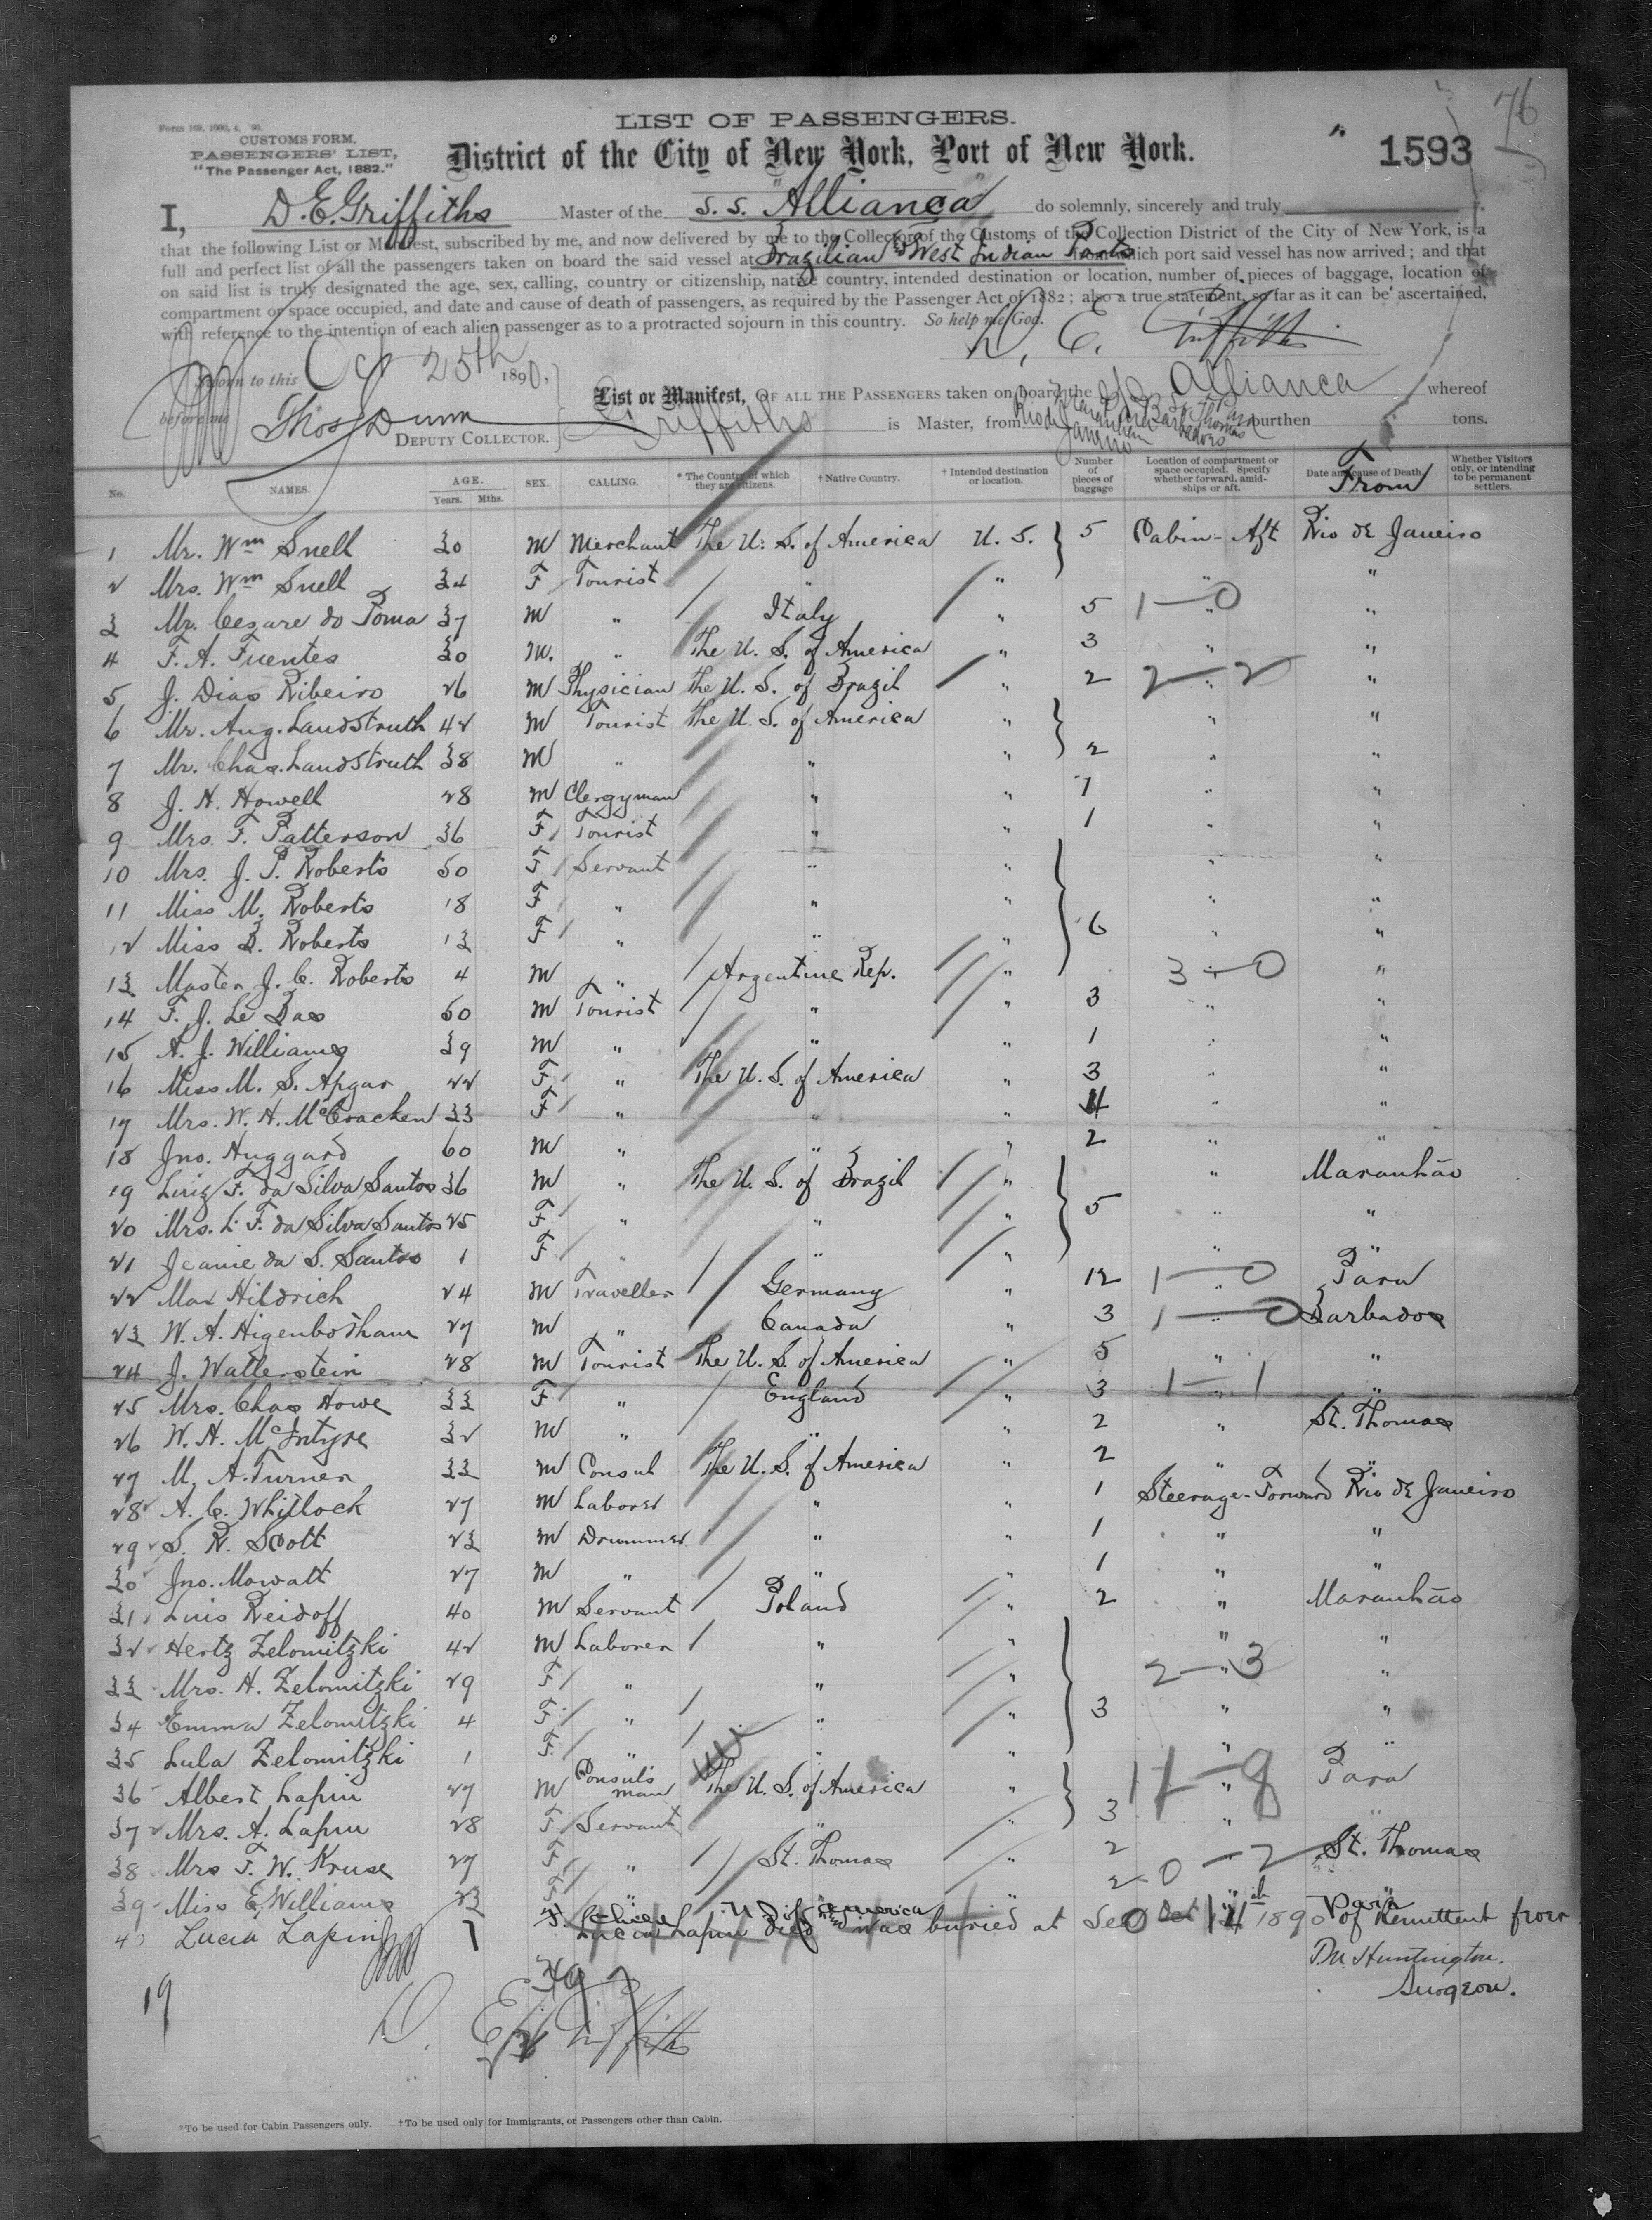 76
Form 169, 1000, 4, '90.
CUSTOMS FORM,
PASSENGERS' LIST,
"The Passenger Act, 1882."
LIST OF PASSENGERS.
District of the City of New York, Port of New York.
1593
I, D. E. Griffiths Master of the S. S. "Allianca" do solemnly, sincerely and truly
that the following List or Manifest, subscribed by me, and now delivered by me to the Collector of the Customs of the Collection District of the City of New York, is a
full and perfect list of all the passengers taken on board the said vessel at Brazilian & West Indian Ports from which port said vessel has now arrived; and that
on said list is truly designated the age, sex, calling, country or citizenship, native country, intended destination or location, number of pieces of baggage, location of
compartment or space occupied, and date and cause of death of passengers, as required by the Passenger Act of 1882; also a true statement, so far as it can be ascertained,
with reference to the intention of each alien passenger as to a protracted sojourn in this country. So help me God.
D. E. Griffiths
Sworn to this Oct 25th 1890,
before me Thos J Dunn
DEPUTY COLLECTOR.
List or Manifest, OF ALL THE PASSENGERS taken on board the S/S Allianca whereof
Griffiths is Master, from Rio de Janeiro Maranham Para Barbados St Thomas burthen tons.
No. NAMES. AGE. Years. Mths. SEX. CALLING. * The Country of which they are citizens. † Native Country. † Intended destination or location. Number of pieces of baggage Location of compartment or space occupied. Specify whether forward, amidships or aft. Date and cause of Death. From Whether Visitors only, or intending to be permanent settlers.
1 Mr. Wm Snell 30 M Merchant The U. S. of America U. S. 5 Cabin - Aft Rio de Janeiro
2 Mrs. Wm Snell 34 F Tourist " " " "
3 Mr. Cezare do Poma 37 M " Italy " 5 1—0 " "
4 F. A. Fuentes 30 M. " The U. S. of America " 3 " "
5 J. Dias Ribeiro 26 M Physician The U. S. of Brazil " 2 2—2 " "
6 Mr. Aug. Landstruth 42 M Tourist The U. S. of America " " "
7 Mr. Chas. Landstruth 38 M " " " 2 " "
8 J. H. Howell 28 M Clergyman " " 7 " "
9 Mrs. F. Patterson 36 F Tourist " " 1 " "
10 Mrs. J. P. Roberts 50 F Servant " " " "
11 Miss M. Roberts 18 F " " " " "
12 Miss B. Roberts 13 F " " " 6 " "
13 Master J. C. Roberts 4 M " Argentine Rep. " 3—0 "
14 F. J. Le Bas 50 M Tourist " " 3 " "
15 A. J. Williams 39 M " " " 1 " "
16 Miss M. S. Apgar 22 F " The U. S. of America " 3 " "
17 Mrs. W. H. McCracken 33 F " " " 4 " "
18 Jno. Huggard 60 M " " " 2 " "
19 Luiz F. da Silva Santos 36 M " The U. S. of Brazil " " Maranhão
20 Mrs. L. F. da Silva Santos 25 F " " " 5 " "
21 Jeanie da S. Santos 1 F " " " " "
22 Max Hildrich 24 M Traveller Germany " 12 1—0 " Para
23 W. A. Higenbotham 27 M " Canada " 3 1—0 " Barbados
24 J. Wallerstein 28 M Tourist The U. S. of America " 5 " "
25 Mrs. Chas Howe 33 F " England " 3 1—1 " "
26 W. H. McIntyre 32 M " " " 2 " St. Thomas
27 M. A. Turner 33 M Consul The U. S. of America " 2 " "
28 A. C. Whitlock 27 M Laborer " " 1 Steerage - Forward Rio de Janeiro
29 S. R. Scott 23 M Drummer " " 1 " "
30 Jno. Mowatt 27 M " " " 1 " "
31 Luis Reidoff 40 M Servant Poland " 2 " Maranhão
32 Hertz Zelomitzki 42 M Laborer " " " "
33 Mrs. H. Zelomitzki 29 F " " " 2—3 " "
34 Emma Zelomitzki 4 F " " " 3 " "
35 Lula Zelomitzki 1 F " " " " "
36 Albert Lapin 27 M Consul's man The U. S. of America " 11—8 " Para
37 Mrs. A. Lapin 28 F Servant " " 3 " "
38 Mrs F. W. Kruse 27 F " St. Thomas " 2 St. Thomas
39 Miss E. Williams 23 F " " " 2 0—2 " "
40 Lucia Lapin 7 F. U. S. of America Para
Lucia Lapin died was buried at Sea Oct 14 1890 of Remittent
Dr. Huntington.
Surgeon.
19
D. E. Griffiths
*To be used for Cabin Passengers only. †To be used only for Immigrants, or Passengers other than Cabin.